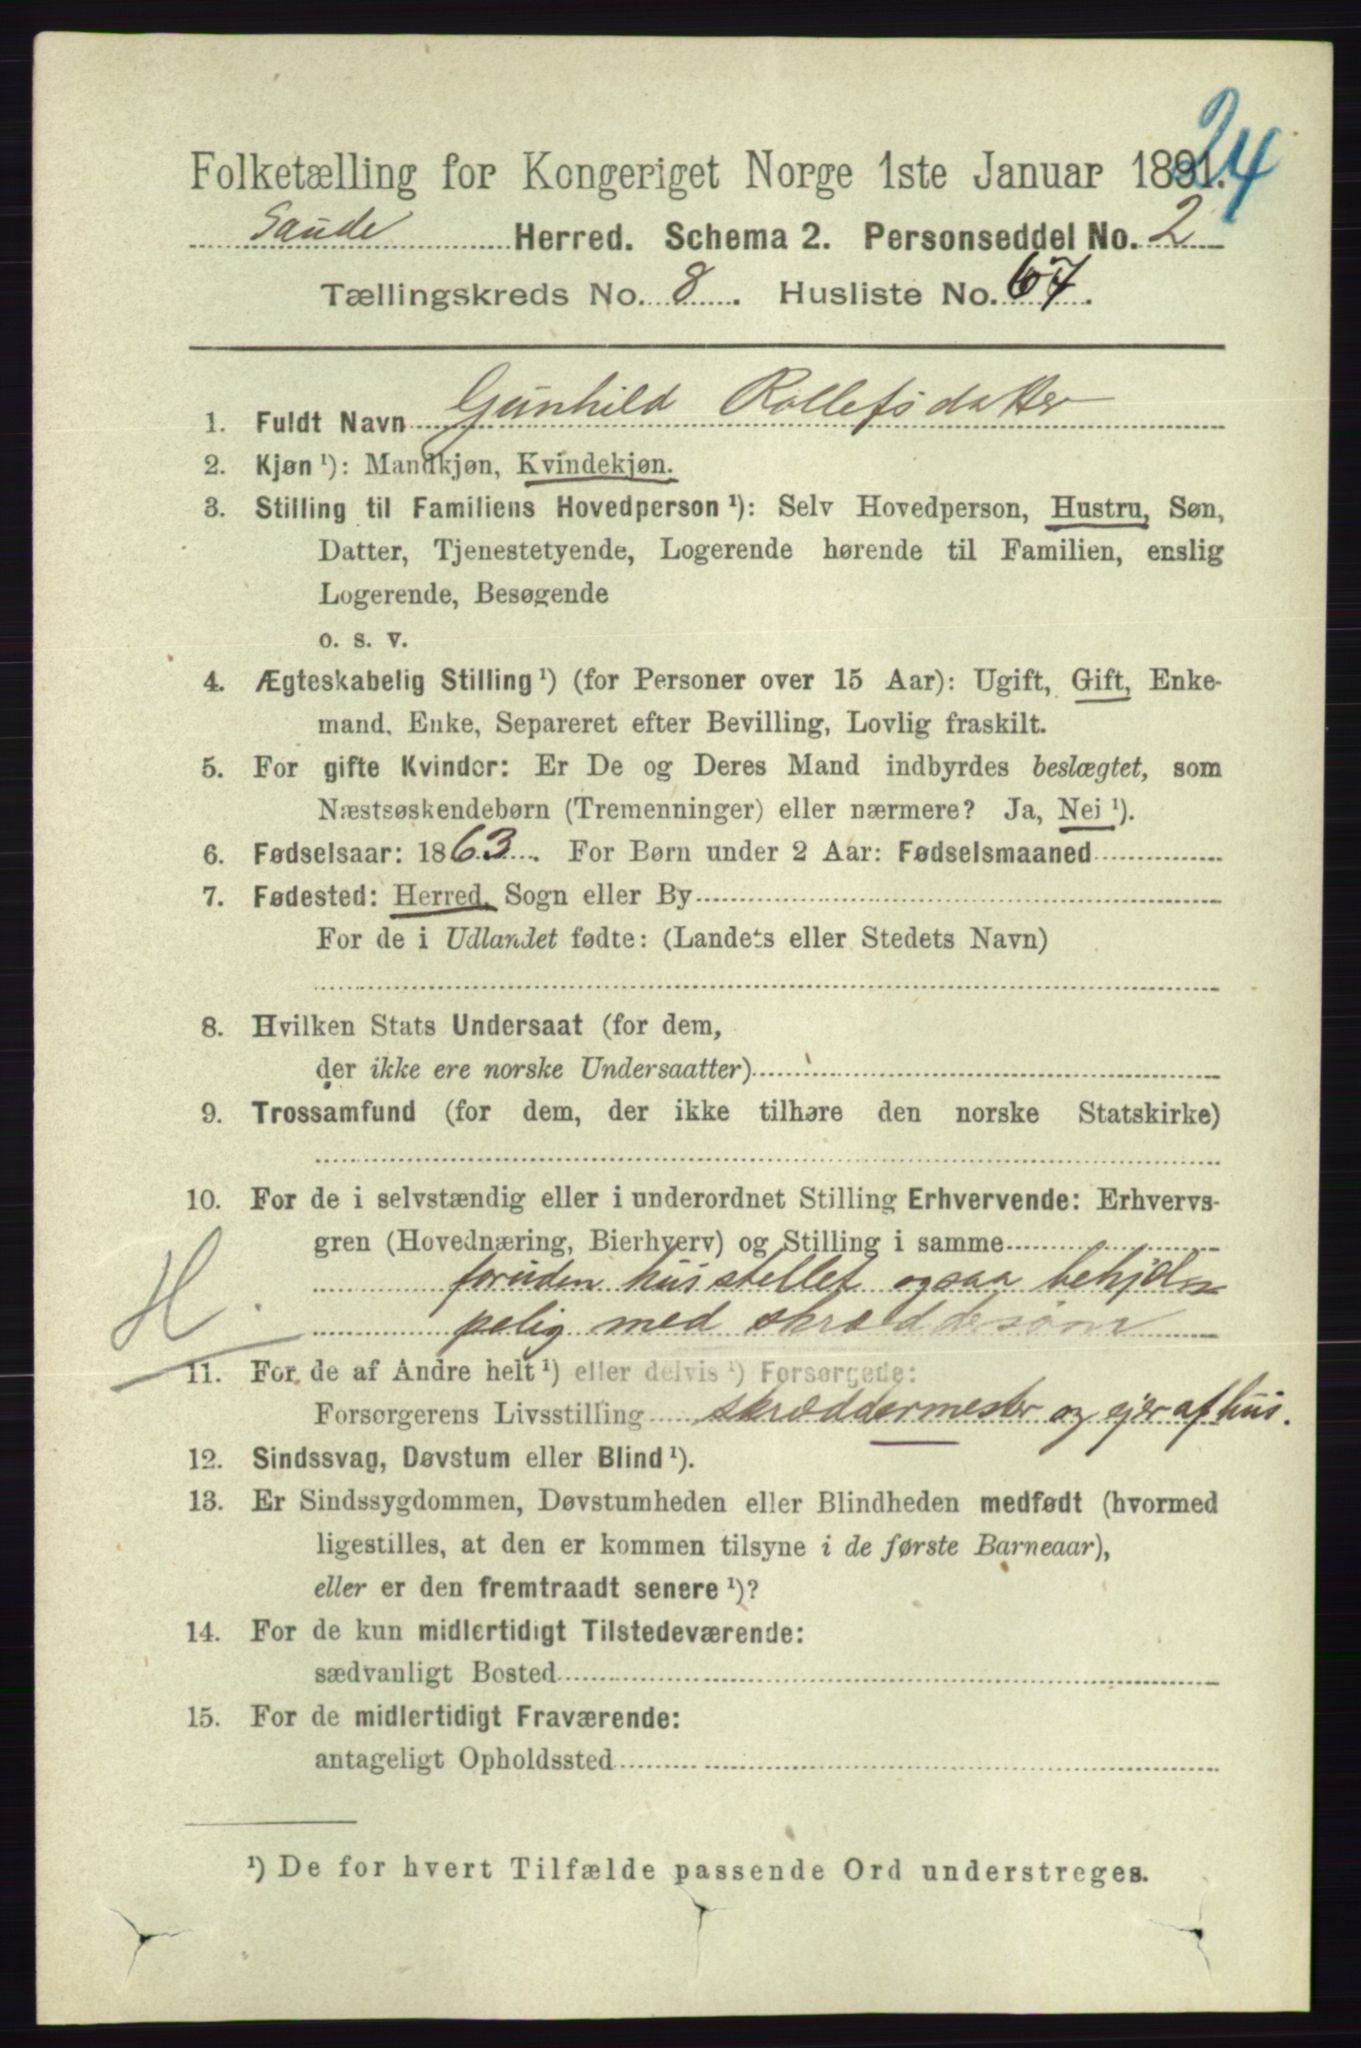 24
Folketælling for Kongeriget Norge 1ste Januar 1891.
Saude Herred. Schema 2. Personseddel No. 2
Tællingskreds No. 8. Husliste No. 67.
1. Fuldt Navn Gunhild Rollefsdatter
2. Kjøn ¹): Mandkjøn, Kvindekjøn.
3. Stilling til Familiens Hovedperson ¹): Selv Hovedperson, Hustru, Søn,
Datter, Tjenestetyende, Logerende hørende til Familien, enslig
Logerende, Besøgende
o. s. v.
4. Ægteskabelig Stilling ¹) (for Personer over 15 Aar): Ugift, Gift, Enke-
mand, Enke, Separeret efter Bevilling, Lovlig fraskilt.
5. For gifte Kvinder: Er De og Deres Mand indbyrdes beslægtet, som
Næstsøskendebørn (Tremenninger) eller nærmere? Ja, Nei ¹).
6. Fødselsaar: 1863. For Børn under 2 Aar: Fødselsmaaned
7. Fødested: Herred, Sogn eller By
For de i Udlandet fødte: (Landets eller Stedets Navn)
8. Hvilken Stats Undersaat (for dem,
der ikke ere norske Undersaatter)
9. Trossamfund (for dem, der ikke tilhøre den norske Statskirke)
10. For de i selvstændig eller i underordnet Stilling Erhvervende: Erhvervs-
gren (Hovednæring, Bierhverv) og Stilling i samme
foruden husstellet ogsaa behjæl
H. pelig med skræddersøm
11. For de af Andre helt ¹) eller delvis ¹) Forsørgede:
Forsørgerens Livsstilling skræddermester og ejer af hus.
12. Sindssvag, Døvstum eller Blind ¹).
13. Er Sindssygdommen, Døvstumheden eller Blindheden medfødt (hvormed
ligestilles, at den er kommen tilsyne i de første Barneaar),
eller er den fremtraadt senere ¹)?
14. For de kun midlertidigt Tilstedeværende:
sædvanligt Bosted
15. For de midlertidigt Fraværende:
antageligt Opholdssted
¹) De for hvert Tilfælde passende Ord understreges.